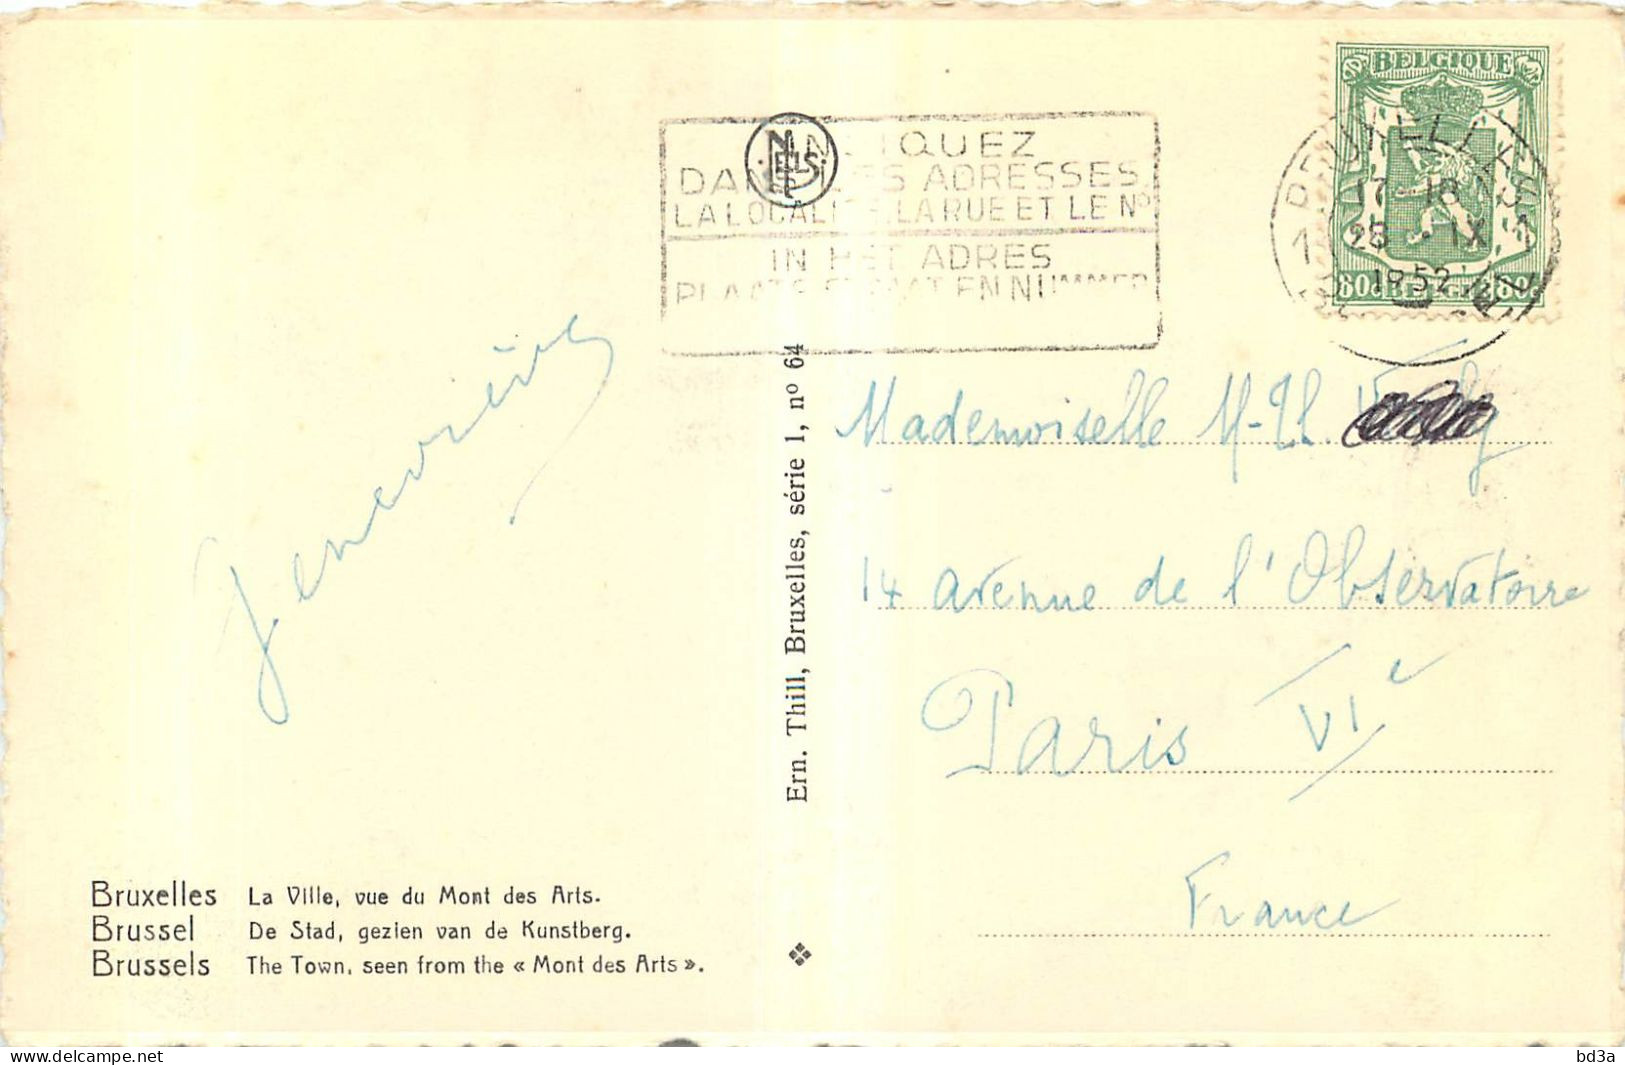 BELGIQUE
80c BELGIE 80c
BRUXELLES
17-18
25 - IX
1952
INDIQUEZ
DANS LES ADRESSES
LA LOCALITE, LA RUE ET LE No
IN HET ADRES
PLAATS STRAAT EN NUMMER
NELS
Geneviève
Ern. Thill, Bruxelles, série 1, nº 64
Mademoiselle M-Th.
14 avenue de l'Observatoire
Paris VIe
France
Bruxelles La Ville, vue du Mont des Arts.
Brussel De Stad, gezien van de Kunstberg.
Brussels The Town, seen from the « Mont des Arts ».
www.delcampe.net
bd3a